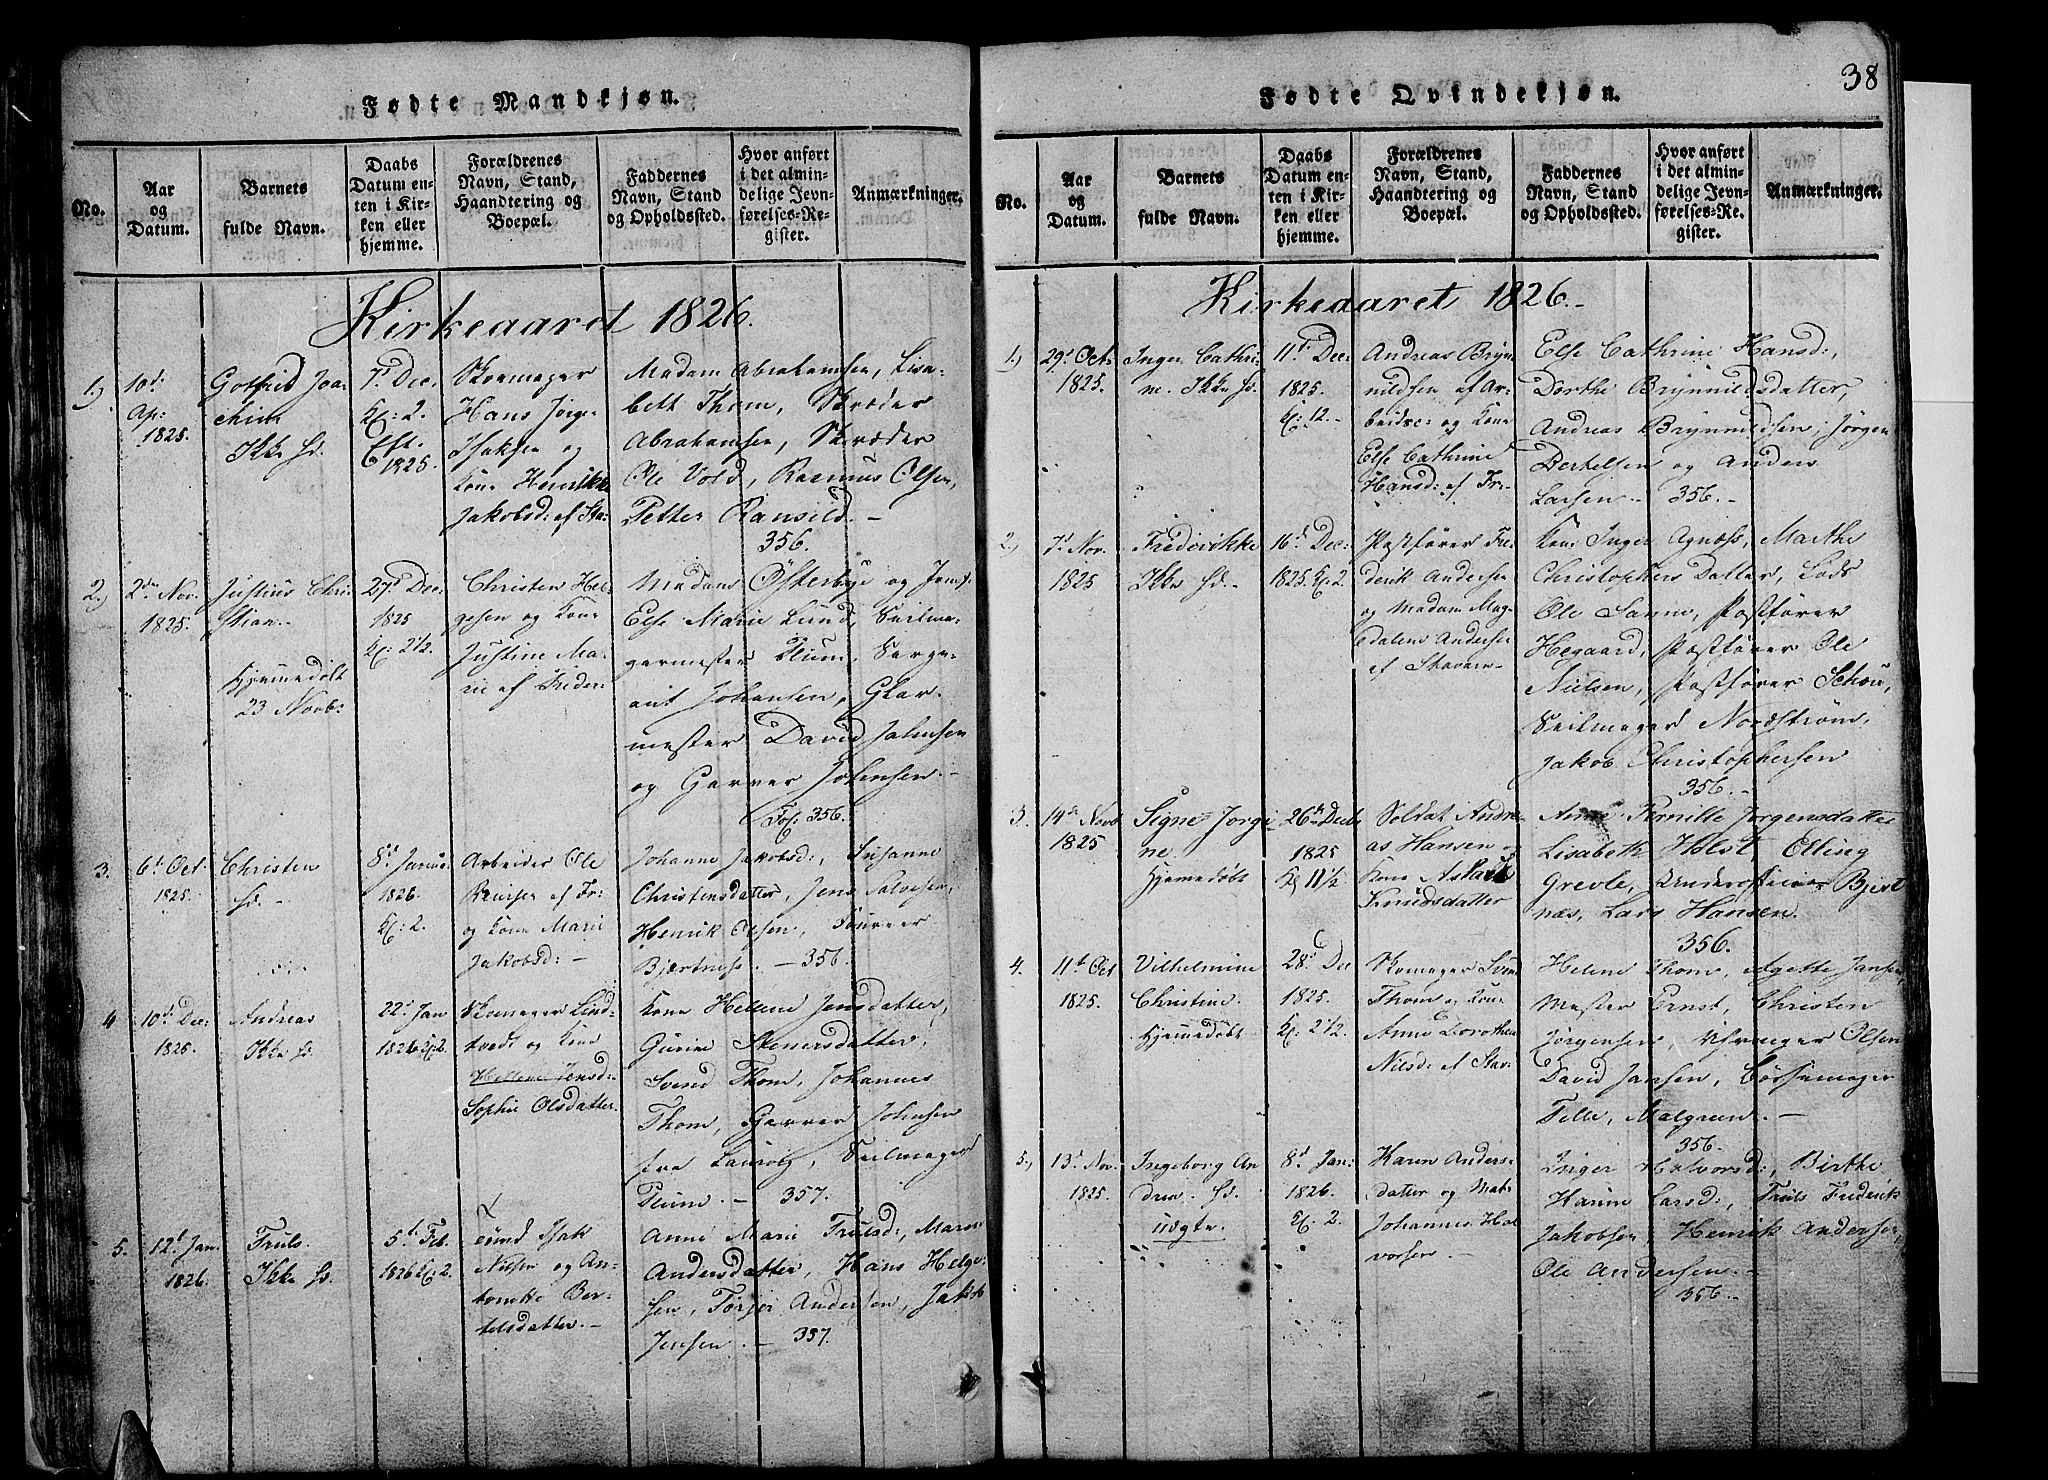 38
Fødte Mandkjøn.
No.
Aar
og
Datum.
Barnets
fulde Navn.
Daabs
Datum en-
ten i Kir-
ken eller
hjemme.
Forældrenes
Navn, Stand,
Haandtering og
Boepæl.
Faddernes
Navn, Stand
og Opholdssted.
Hvor anført
i det almin-
delige Jevn-
førelses-Re-
gister.
Anmærkninger.
Kirkeaaret 1826.
1.)
10d:
Ap:
1825.
Gotfried Joa-
chim
Ikke hd.
7d Dec.
Kl: 2.
Eft.
1825.
Skoemager
Hans Jørgen
Isaksen og
Kone Henrikke
Jakobsd: af Sta-
Madam Abrahamsen, Lisa-
bett Thom, Skræder
Abrahamsen, Skræder
Ole Vold, Rasmus Olsen,
Petter Ransild. -
356.
2.)
2den Nov.
1825.
Justius Chri-
stian.
Hjemmedøbt
23 Novb:
27d Dec.
1825
Kl: 2 1/2.
Christen Hel-
gesen og Kone
Justine Ma-
rie af Freder:
Madam Østerbye og Jomf:
Else Marie Lund, Seilma-
germester Plum, Serge-
ant Johansen, Glar-
mester David Johnsen
og Garver Johnsen. -
Fol: 356.
3.
6d Oct.
1825.
Christen
hd. -
8d Januar
1826.
Kl: 2.
Arbeider Ole
af Fr:
og Kone Marie
Jakobsd: -
Johanne Jakobsd:, Susanne
Christensdatter, Jens Salvesen,
Henrik Olsen,
Bjertnes. - 356.
4
10d Dec:
1825.
Andreas
Ikke hd.
22d Jan
1826 Kl. 2.
Skomager Lind-
tvedt og Kone
Hellene Jensd:
Sophie Olsdatter.
Kone Hellene Jensdatter,
Gurine Stenersdatter,
Svend Thom, Johannes
Thom, Garver Johnsen
fra Laurvig, Seilmager
Plum. - 357.
5.
12d Jan.
1826.
Truls.
Ikke hd.
5d Feb.
1826 Kl. 2.
Isak
Nilsen og An-
tonette Ber-
telsdatter. -
Anne Marie Trulsd:, Maren
Andersdatter, Hans Helge-
sen, Torjer Andersen, Jakob
Jensen. - 357.
Fødte Qvindekjøn.
No.
Aar
og
Datum.
Barnets
fulde Navn.
Daabs
Datum en-
ten i Kir-
ken eller
hjemme.
Forældrenes
Navn, Stand,
Haandtering og
Boepæl.
Faddernes
Navn, Stand
og Opholdssted.
Hvor anført
i det almin-
delige Jevn-
førelses-Re-
gister.
Anmærkninger.
Kirkeaaret 1826.
1.)
29d Oct.
1825.
Inger Cathri-
ne. Ikke hd.
11d Dec:
1825.
Kl: 12.
Andreas Bryn-
nildsen af Ar-
beidre: og Kone
Else Cathrine
Hansd: af Fre-
Else Cathrine Hansd:,
Dorthe Brynnildsdatter,
Andreas Brynnildsen, Jørgen
Bertelsen og Anders
Larsen. 356. -
2.)
7d Nov.
1825
Frederikke
Ikke hd. -
16d Dec:
1825. Kl. 2.
Postfører Fre-
derik Andersen
og Madam Mag-
dalene Andersen
af Stavern
Kone Inger Agnæss, Marthe
Christophers Datter, Lods
Ole Sanne, Postfører
Hegaard, Postfører Ole
Nielsen, Postfører Schou,
Seilmager Nordstrøm,
Jakob Christophersen
356. -
3.
14de Novb
1825
Signe Jorgi-
ne
Hjemedøbt
26de Decb.
1825
Kl 11 1/2
Soldat Andre-
as Hansen og
Kone
Knudsdatter
Anne Pernille Jørgensdatter
Lisabeth Holst, Elling
Grevle, Underofficeer Bjert-
næs, Lars Hansen.
356.
4.
11d Oct
1825.
Vilhelmine
Christine.
Hjemmedøbt
28d Dec
1825.
Kl: 2 1/2.
Skomager Svend
Thom og Kone
Anne Dorothea
Nilsd: af Stav-
Helene Thom, Agette Jansen,
Mester Ernst, Christen
Jørgensen, Olsen
David Jansen, Bøssemager
Telle, Malgreen. -
356.
5.
13d Nov.
1825.
Ingeborg An-
drea. hd.
uægte.
8d Jan:
1826.
Kl. 2.
Karen Anders-
datter og Mat.
Johannes Hal-
vorsen. -
Inger Halvorsd:, Birthe
Karine Larsd:, Truls Fredrik
Jakobsen, Henrik Andersen,
Ole Andersen. -
356. -